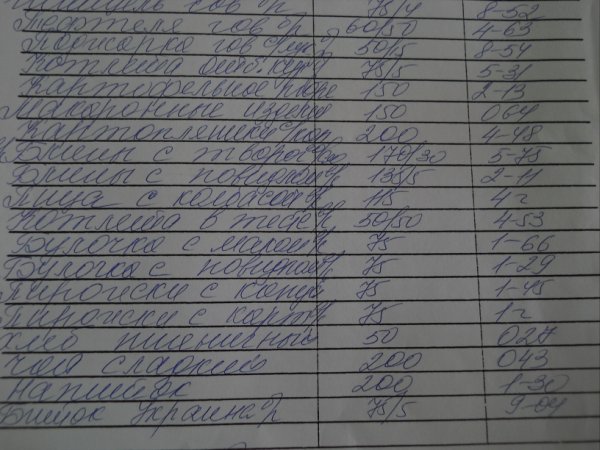 Шницель гов 75/4 8-52
Тефтеля гов 60/50 4-63
Поджарка гов 50/5 8-54
Котлета 75/5 5-31
Картофельное пюре 150 2-13
Макаронные издели 150 064
200 4-48
Блины с творог 170/30 5-75
Блины с повидлом 135/5 2-11
с колбасой 115
Котлета в тесте 50/50 4-53
Булочка с маком 75 1-66
Булочка с повидлом 75 1-29
Пирожки с капус 75 1-45
Пирожки с карт 75
Хлеб пшеничный 50 027
Чай сладкий 200 043
Напиток 200 1-30
Биток Украина 75/5 9-04